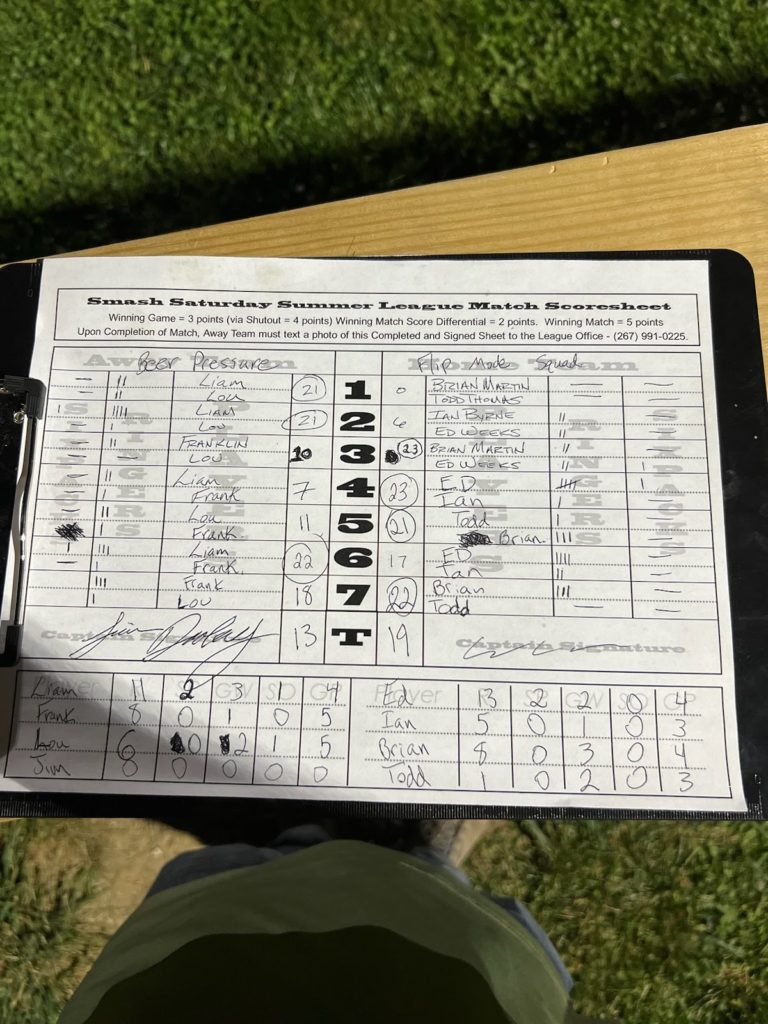 Smash Saturday Summer League Match Scoresheet
Winning Game = 3 points (via Shutout = 4 points) Winning Match Score Differential = 2 points. Winning Match = 5 points
Upon Completion of Match, Away Team must text a photo of this Completed and Signed Sheet to the League Office - (267) 991-0225.
Away Team Beer Pressure Home Team Flip Mode Squad
— || Liam 21 1 0 BRIAN MARTIN — —
— || Lou TODD THOMAS — —
| |||| LIAM 21 2 6 IAN BYRNE ||
— | Lou ED WEEKS || —
— || FRANKLIN 10 3 23 BRIAN MARTIN || —
— — LOU ED WEEKS || |
— || Liam 7 4 23 ED |||| |
— | Frank Ian | —
— || Lou 11 5 21 Todd | —
| Frank Brian ||| —
| ||| Liam 22 6 17 ED |||| —
— | Frank Ian || —
||| Frank 18 7 22 Brian ||| —
| Lou Todd — —
Captain Signature 13 T 19 Captain Signature
Liam 11 2 3 1 4 Player Ed 13 2 2 0 4
Frank 8 0 1 0 5 Ian 5 0 1 0 3
Lou 6 0 2 1 5 Brian 8 0 3 0 4
Jim 8 0 0 0 0 Todd 1 0 2 0 3